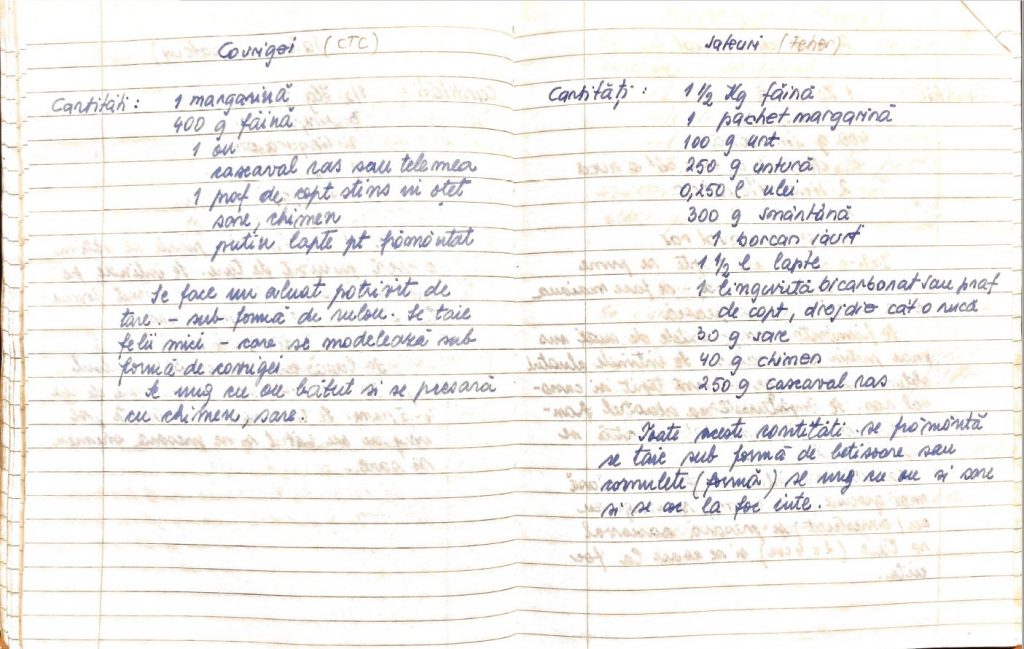 Covrigei (CTC)
Cantităti : 1 margarină
400 g făină
1 ou
cascaval ras sau telemea
1 praf de copt stins in oțet
sare, chimen
putin lapte pt frămîntat
Se face un aluat potrivit de
tare. - sub formă de rulou. Se taie
felii mici - care se modelează sub
formă de covrigei
Se ung cu ou bătut si se presară
cu chimen, sare.
Sateuri (Feher)
Cantități : 1 1/2 Kg făină
1 pachet margarină
100 g unt
250 g untură
0,250 l ulei
300 g smântână
1 borcan iaurt
1 1/2 l lapte
1 linguriță bicarbonat sau praf
de copt, drojdie cât o nucă
30 g sare
40 g chimen
250 g cascaval ras
Toate aceste cantități se frămîntă
se taie sub formă de betisoare sau
cornulete (formă) se ung cu ou si sare
si se coc la foc iute.